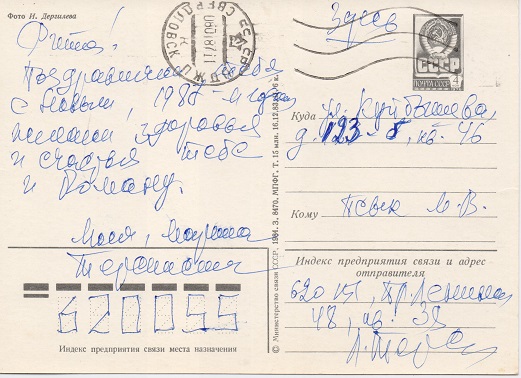 Фото И. Дергилева
СВЕРДЛОВСК
Здесь
СССР
ПОЧТА
4
Поздравляю тебя
с Новым, 1987-м годом
желаем здоровья
и счастья тебе
и Роману.
Марина
Куда ул. Куйбышева
д. 123-б, кв. 46
Кому М. В.
Индекс предприятия связи и адрес
отправителя
пр. Ленина
48, кв. 38
620055
Индекс предприятия связи места назначения
© Министерство связи СССР. 1984. З. 8470. МПФГ. Т. 15 млн. 16.12.83.